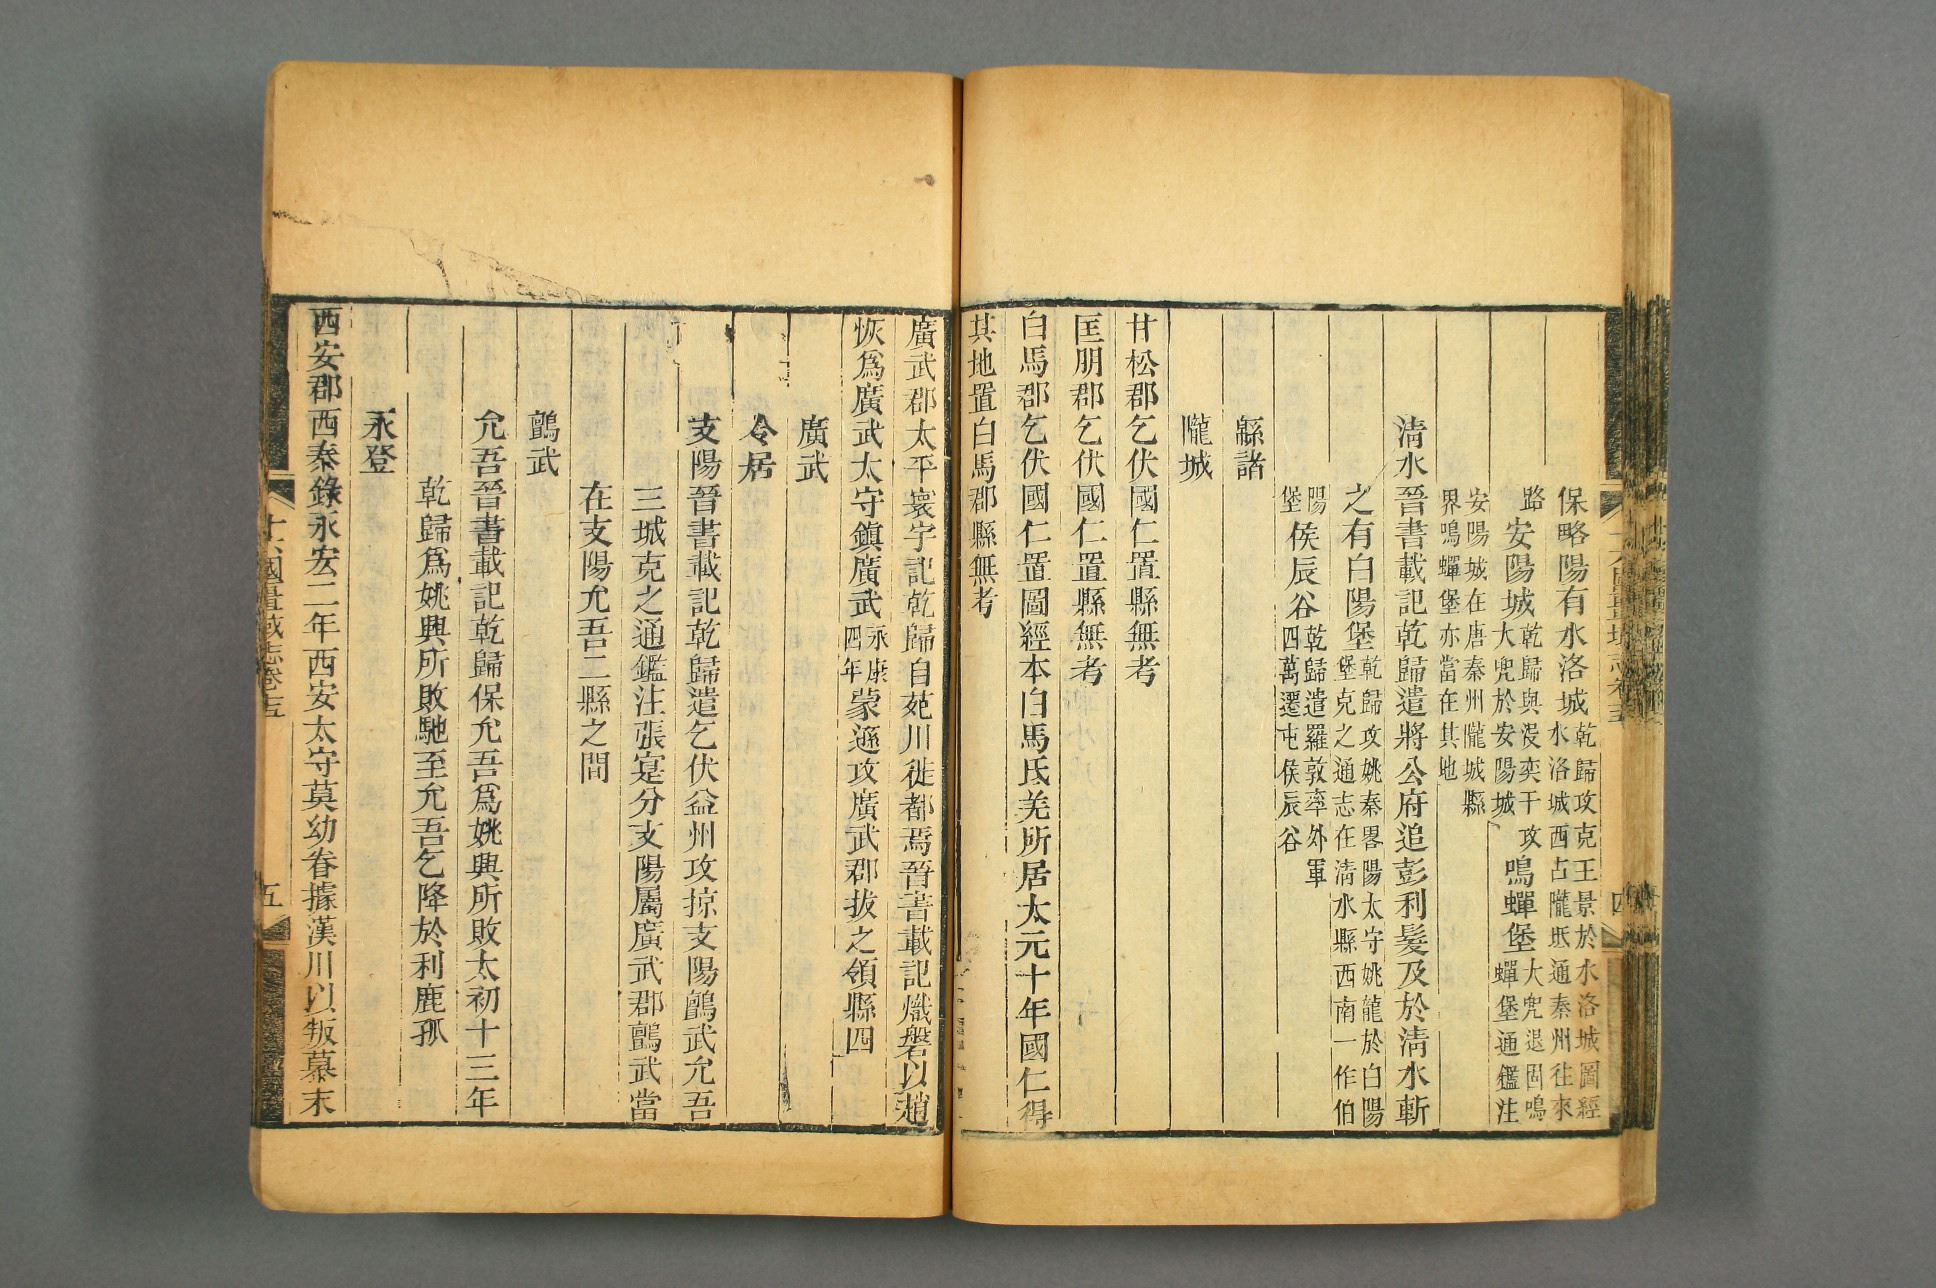 保略陽有水洛城乾歸攻克王景於水洛城圖經水洛城西占隴坻通秦州往來
路安陽城乾歸與沒奕干攻大兜於安陽城鳴蟬堡大兜退固鳴蟬堡通鑑注
安陽城在唐秦州隴城縣界鳴蟬堡亦當在其地
清水晉書載記乾歸遣將公府追彭利髮及於清水斬
之有白陽堡乾歸攻姚秦畧陽太守姚龍於白陽堡克之通志在清水縣西南一作伯
陽堡侯辰谷乾歸遣羅敦率外軍四萬遷屯侯辰谷
緜諸
隴城
甘松郡乞伏國仁置縣無考
匡朋郡乞伏國仁置縣無考
白馬郡乞伏國仁置圖經本白馬氐羌所居太元十年國仁得
其地置白馬郡縣無考
廣武郡太平寰宇記乾歸自苑川徙都焉晉書載記熾磐以趙
恢爲廣武太守鎮廣武永康四年蒙遜攻廣武郡拔之領縣四
廣武
令居
支陽晉書載記乾歸遣乞伏益州攻掠支陽鸇武允吾
三城克之通鑑注張寔分支陽屬廣武郡鸇武當
在支陽允吾二縣之間
鸇武
允吾晉書載記乾歸保允吾爲姚興所敗太初十三年
乾歸爲姚興所敗馳至允吾乞降於利鹿孤
永登
西安郡西秦錄永安二年西安太守莫幼眷據漢川以叛慕末
十六國疆域志卷十五
五